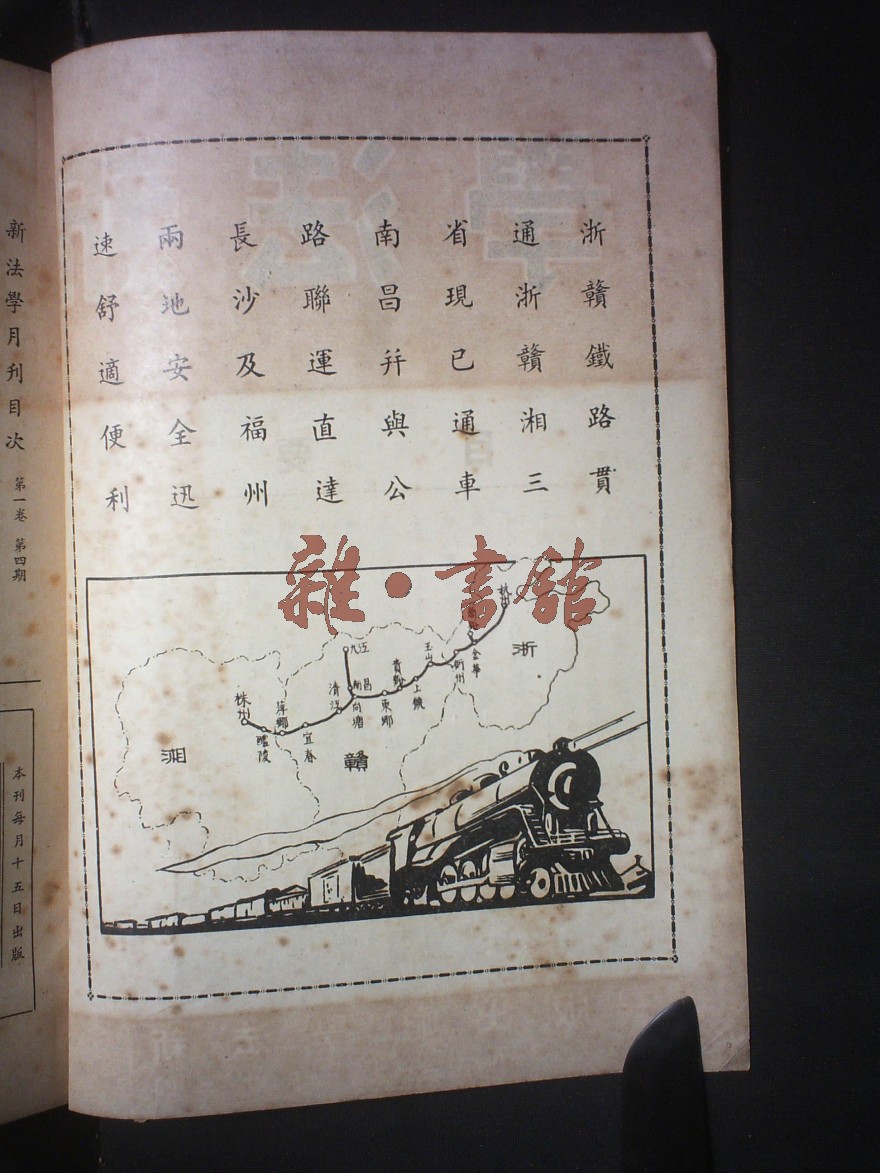 浙贛鐵路貫
通浙贛湘三
省現已通車
南昌幷與公
路聯運直達
長沙及福州
兩地安全迅
速舒適便利
雜·書館
浙
金華
衢州
玉山
上饒
貴谿
東鄉
南昌
向塘
九江
清江
宜春
萍鄉
醴陵
株州
贛
湘
新法學月刊目次
第一卷 第四期
本刊每月十五日出版